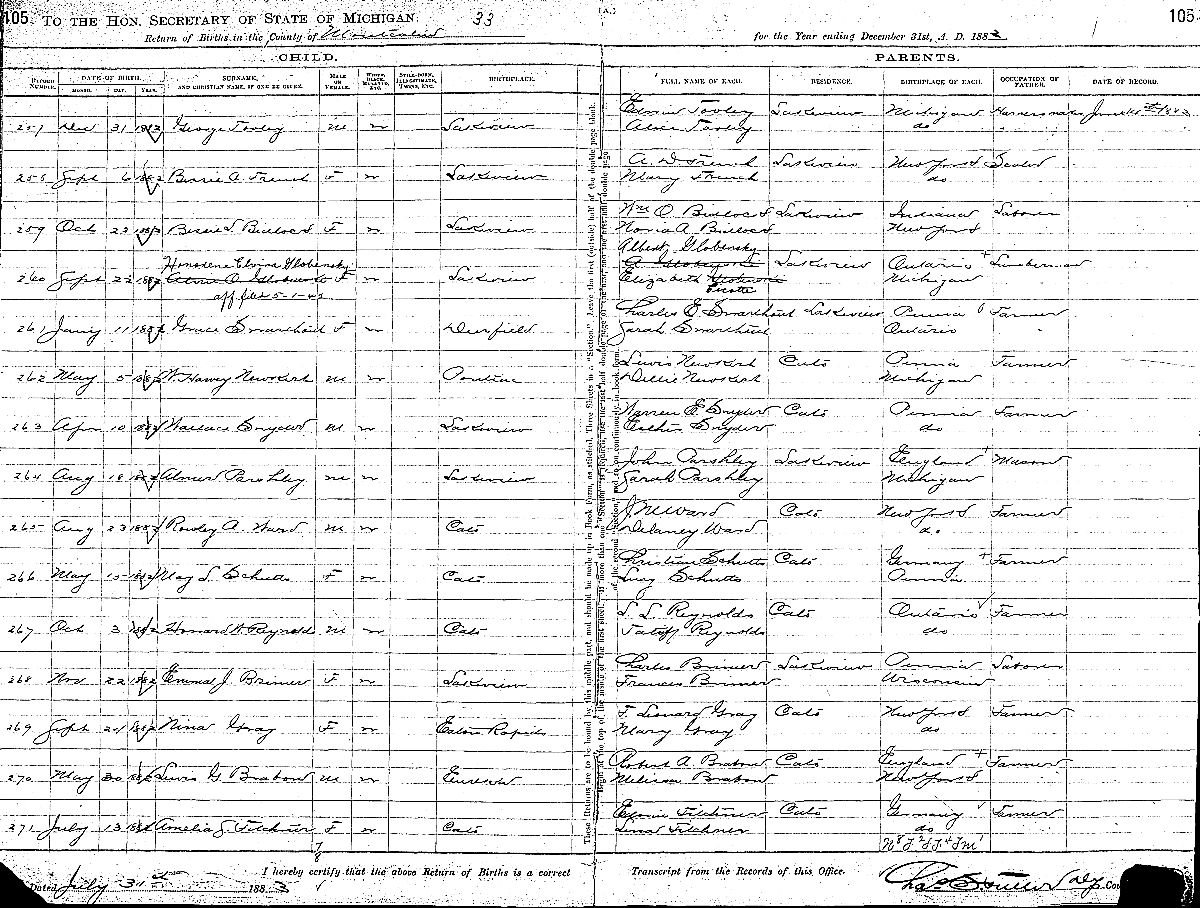 105. TO THE HON. SECRETARY OF STATE OF MICHIGAN. 33 (A.) 105
Return of Births in the County of Montcalm for the Year ending December 31st, A. D. 188
CHILD. PARENTS.
RECORD NUMBER. DATE OF BIRTH. MONTH. DAY. YEAR. SURNAME, AND CHRISTIAN NAME, IF ONE BE GIVEN. MALE OR FEMALE. WHITE, BLACK, MULATTO, ETC. STILL-BORN, ILLEGITIMATE, TWINS, ETC. BIRTHPLACE. FULL NAME OF EACH. RESIDENCE. BIRTHPLACE OF EACH. OCCUPATION OF FATHER. DATE OF RECORD.
257 Dec 31 1882 George Tooley M W Lakeview Edwin Tooley Lakeview Michigan Harnessmaker June 1883
Alice Tooley do
258 Sept 6 1882 A. French F W Lakeview A. D French Lakeview New York Sealer
Mary French do
259 Oct 23 1882 Bessie L. Bullock F W Lakeview Wm O. Bullock Lakeview Indiana Laborer
A Bullock New York
260 Sept 22 1882 Elvina Globensky F W Lakeview Albert Globensky Lakeview Ontario Lumberman
aff filed 5-1-42 Elizabeth Michigan
261 11 1882 Grace Swarthout F W Deerfield Charles E Swarthout Lakeview Penna Farmer
Sarah Swarthout Ontario
262 May 5 1882 Harry Newkirk M W Pontiac Lewis Newkirk Cato Penna Farmer
Dellie Newkirk Michigan
263 Apr 10 1882 Wallace Snyder M W Lakeview Warren E. Snyder Cato Penna Farmer
Esther Snyder do
264 Aug 18 1882 Parshley M W Lakeview John Parshley Lakeview England Mason
Sarah Parshley Michigan
265 Aug 23 1882 A. Ward M W Cato J M Ward Cato New York Farmer
Delaney Ward do
266 May 15 1882 May L. Schutts F W Cato Christian Schutts Cato Germany Farmer
Lucy Schutts Penna
267 Oct 3 1882 Howard Reynolds M W Cato L. L Reynolds Cato Ontario Farmer
Reynolds do
268 Nov 22 1882 Emma J. Brimer F W Lakeview Charles Brimer Lakeview Penna Laborer
Frances Brimer Wisconsin
269 Sept 21 1882 Nina Gray F W Eaton Rapids F. Leonard Gray Cato New York Farmer
Mary Gray do
270 May 30 1882 Lewis G. Brabon M W Eureka Robert A. Brabon Cato England Farmer
Melissa Brabon New York
271 July 13 1882 Amelia J. Filchner F W Cato Filchner Cato Germany Farmer
Filchner do
These Returns are to be bound by this middle part, and should be made up in Book form, as stitched, Three Sheets in a "Section." Leave the first (outside) half of the double page blank.
I hereby certify that the above Return of Births is a correct Transcript from the Records of this Office.
Dated July 31st 1883